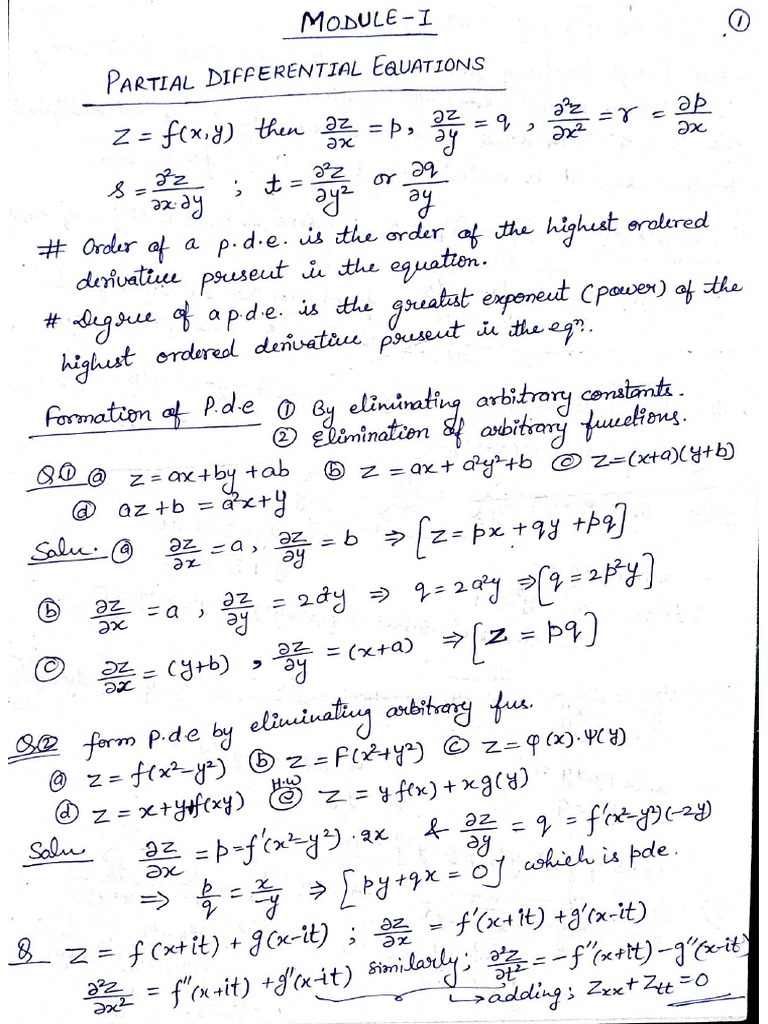 MODULE-I
①
PARTIAL DIFFERENTIAL EQUATIONS
z = f(x,y) then ∂z/∂x = p, ∂z/∂y = q, ∂²z/∂x² = r = ∂p/∂x
s = ∂²z/∂x.∂y ; t = ∂²z/∂y² or ∂q/∂y
# Order of a p.d.e. is the order of the highest ordered
derivative present in the equation.
# Degree of a p.d.e. is the greatest exponent (power) of the
highest ordered derivative present in the eqⁿ.
Formation of P.d.e ① By eliminating arbitrary constants.
② Elimination of arbitrary functions.
Q① ⓐ z = ax+by+ab ⓑ z = ax+a²y²+b ⓒ z=(x+a)(y+b)
ⓓ az+b = a²x+y
Soln. ⓐ ∂z/∂x = a, ∂z/∂y = b ⇒ [z = px + qy + pq]
ⓑ ∂z/∂x = a, ∂z/∂y = 2a²y ⇒ q = 2a²y ⇒ [q = 2p²y]
ⓒ ∂z/∂x = (y+b), ∂z/∂y = (x+a) ⇒ [z = pq]
Q② form p.d.e by eliminating arbitrary fns.
ⓐ z = f(x²-y²) ⓑ z = F(x²+y²) ⓒ z = φ(x).ψ(y)
ⓓ z = x+y+f(xy) H.W ⓔ z = y f(x) + x g(y)
Soln ∂z/∂x = p = f'(x²-y²).2x & ∂z/∂y = q = f'(x²-y²)(-2y)
⇒ p/q = x/-y ⇒ [py+qx = 0] which is pde.
Q z = f(x+it) + g(x-it) ; ∂z/∂x = f'(x+it) + g'(x-it)
∂²z/∂x² = f"(x+it) + g"(x-it) similarly; ∂²z/∂t² = -f"(x+it) - g"(x-it)
↳ adding; Zxx + Ztt = 0